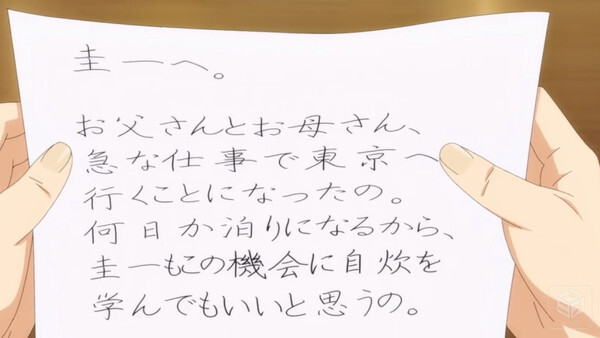 圭一へ。
お父さんとお母さん、
急な仕事で東京へ
行くことになったの。
何日か泊りになるから、
圭一もこの機会に自炊を
学んでもいいと思うの。